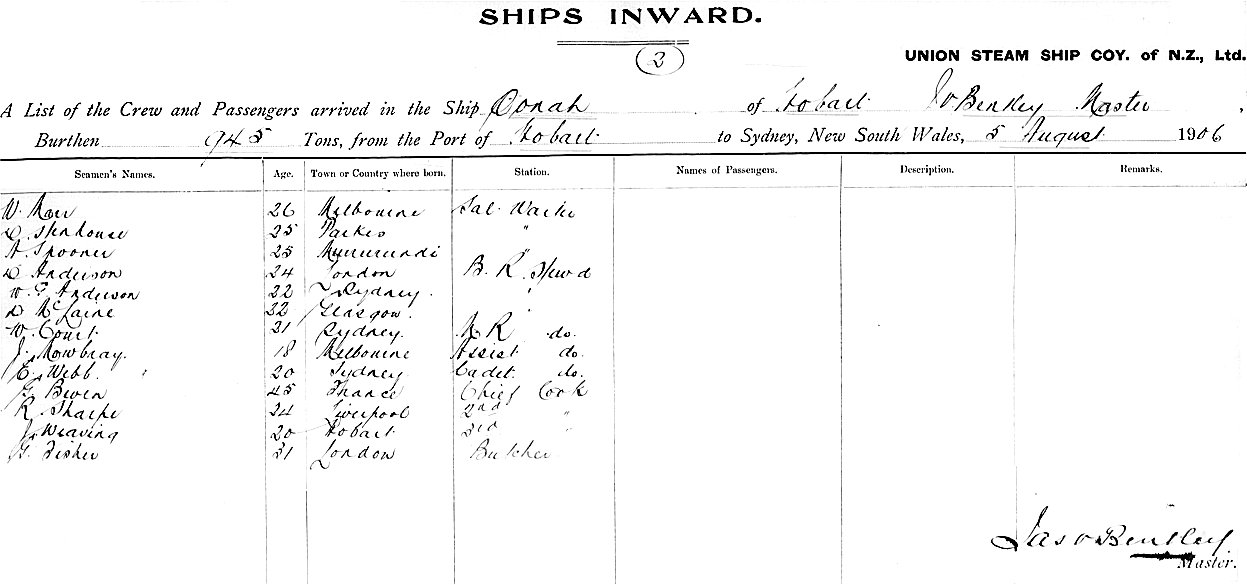 SHIPS INWARD.
2
UNION STEAM SHIP COY. of N.Z., Ltd.
A List of the Crew and Passengers arrived in the Ship Oonah of Hobart Bentley Master
Burthen 945 Tons, from the Port of Hobart to Sydney, New South Wales, 5 August 1906
Seamen's Names. Age. Town or Country where born. Station. Names of Passengers. Description. Remarks.
W. Marr 26 Melbourne Sal. Waiter
D. Stenhouse 25 Parkes "
A. Spooner 25 Murrurundi "
D. Anderson 24 London B. R. Stewd
W. G. Anderson 22 Sydney. "
D McLaine 22 Glasgow. "
W. Court 21 Sydney. M R do.
J. Mowbray. 18 Melbourne Assist do.
C. Webb. 20 Sydney. Cadet. do.
G. Bwen 45 France Chief Cook
R. Sharpe 24 Liverpool 2nd "
J. Weaving 20 Hobart 3rd "
G. Fisher 31 London Butcher
Bentley
Master.